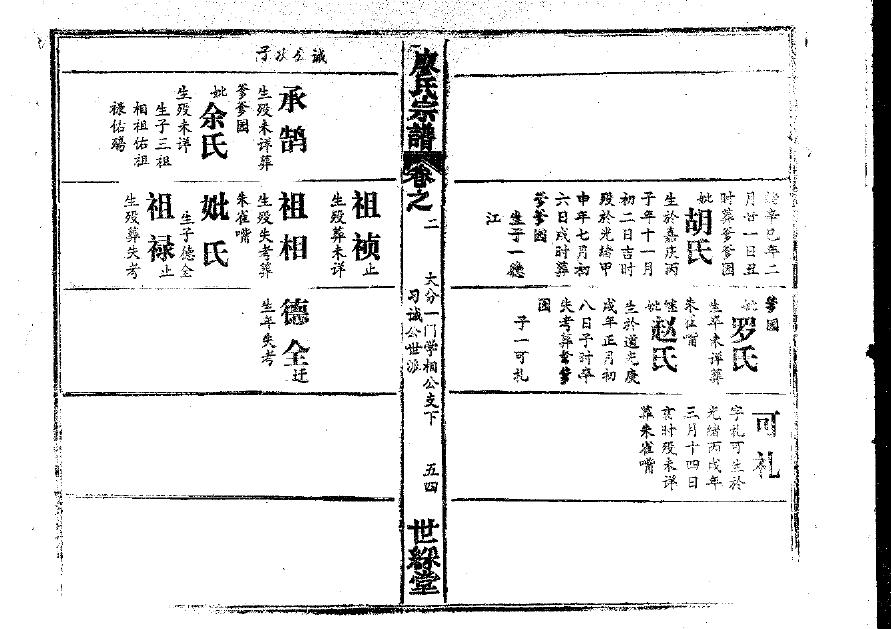 绝辛巳年二
月廿一日丑
时葬爹爹园
妣胡氏
生於嘉庆丙
子年十一月
初二日吉时
殁於光绪甲
申年七月初
六日戌时葬
爹爹园
生子一德
江
爹园
妣罗氏
生卒未详葬
朱雀嘴
继妣赵氏
生於道光庚
戌年正月初
八日子时卒
失考葬爹爹
园
子一可札
可札
字札可生於
光绪丙戌年
三月十四日
亥时殁未详
葬朱雀嘴
廖氏宗譜
卷之二
大分一门学相公支下
习诚公世派
五四
世綵堂
诚全次子
承鹄
生殁未详葬
爹爹园
妣余氏
生殁未详
生子三祖
相祖佑祖
禄佑殇
祖祯止
生殁葬未详
祖相
生殁失考葬
朱雀嘴
妣氏
生子德全
祖禄止
生殁葬失考
德全迁
生年失考